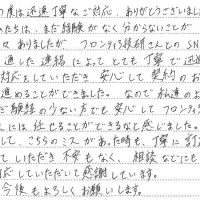 の度は迅速丁寧なご対応、ありがとうございまし
たちは、まだ経験がなく分からないことが
々ありましたが、フロンティア技研さんとのSN
通した連絡によってとても丁寧で迅速
対応していただき安心して契約のお
進めることができました。なので私達のよ
だ経験の少ない方でも安心してフロンティ
んには任せることができるなと感じました。
して、こちらのミスがあった時も、丁寧に訂正
ていただき不安もなく、相談などにも
応していただいて感謝しています。
今後もよろしくお願いします。